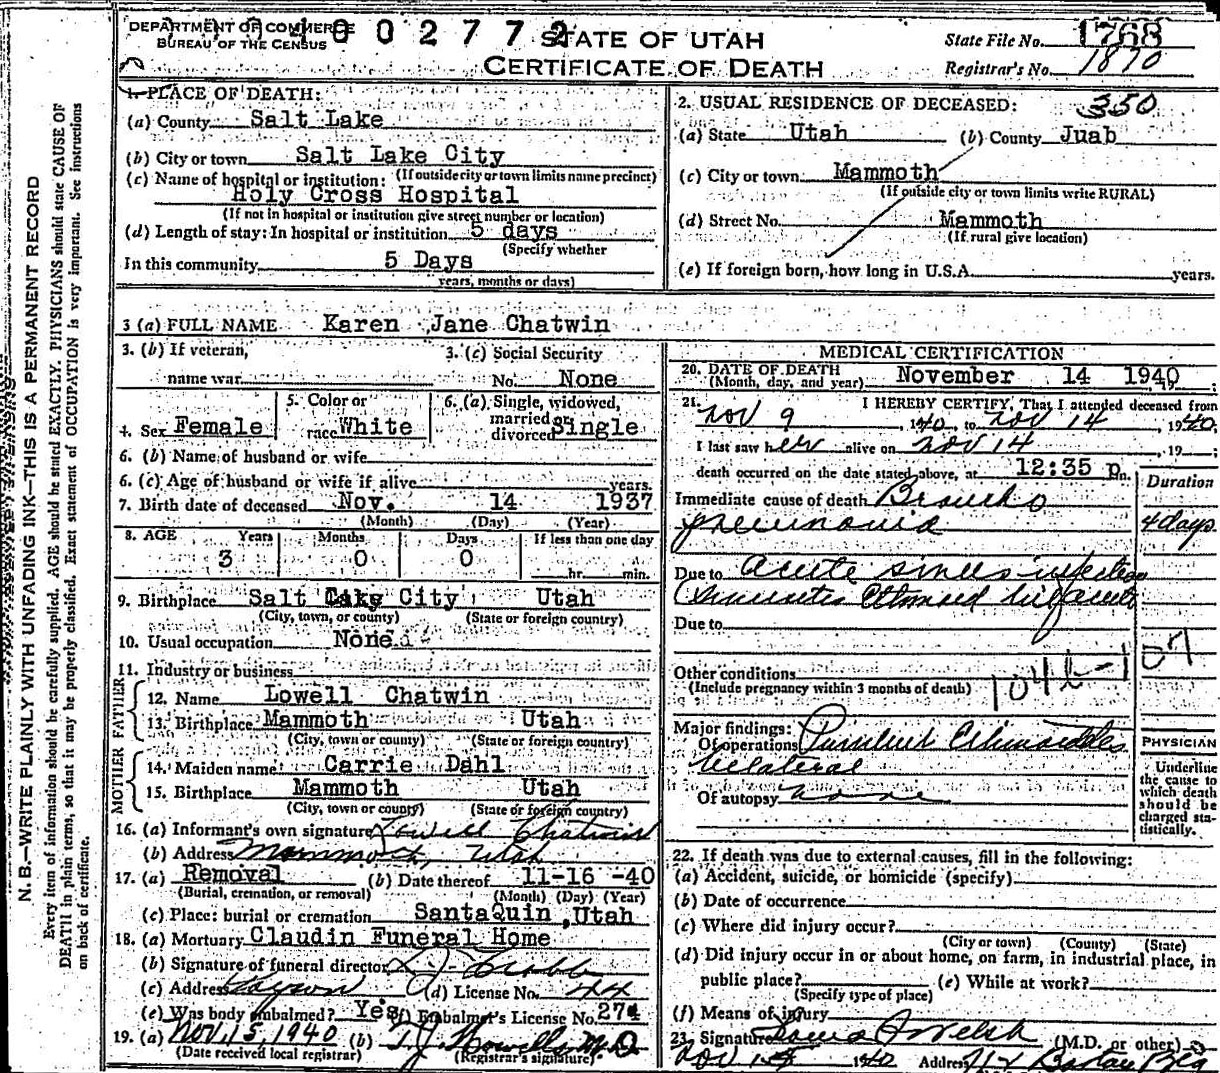 DEPARTMENT OF COMMERCE
BUREAU OF THE CENSUS
002772
STATE OF UTAH
CERTIFICATE OF DEATH
State File No. 1768
Registrar's No. 1870
N. B.—WRITE PLAINLY WITH UNFADING INK—THIS IS A PERMANENT RECORD
Every item of information should be carefully supplied. AGE should be stated EXACTLY. PHYSICIANS should state CAUSE OF
DEATH in plain terms, so that it may be properly classified. Exact statement of OCCUPATION is very important. See instructions
on back of certificate.
1. PLACE OF DEATH:
(a) County Salt Lake
(b) City or town Salt Lake City
(If outside city or town limits name precinct)
(c) Name of hospital or institution:
Holy Cross Hospital
(If not in hospital or institution give street number or location)
(d) Length of stay: In hospital or institution 5 days
(Specify whether
In this community 5 Days
years, months or days)
2. USUAL RESIDENCE OF DECEASED: 350
(a) State Utah (b) County Juab
(c) City or town Mammoth
(If outside city or town limits write RURAL)
(d) Street No. Mammoth
(If rural give location)
(e) If foreign born, how long in U.S.A. years.
3 (a) FULL NAME Karen Jane Chatwin
3. (b) If veteran,
name war
3. (c) Social Security
No. None
4. Sex Female
5. Color or
race White
6. (a) Single, widowed,
married or
divorced Single
6. (b) Name of husband or wife
6. (c) Age of husband or wife if alive years.
7. Birth date of deceased Nov. 14 1937
(Month) (Day) (Year)
8. AGE Years Months Days If less than one day
3 0 0 hr. min.
9. Birthplace Salt Lake City Utah
(City, town, or county) (State or foreign country)
10. Usual occupation None
11. Industry or business
FATHER
12. Name Lowell Chatwin
13. Birthplace Mammoth Utah
(City, town or county) (State or foreign country)
MOTHER
14. Maiden name Carrie Dahl
15. Birthplace Mammoth Utah
(City, town or county) (State or foreign country)
16. (a) Informant's own signature Lowell Chatwin
(b) Address Mammoth, Utah
17. (a) Removal (b) Date thereof 11-16-40
(Burial, cremation, or removal) (Month) (Day) (Year)
(c) Place: burial or cremation SantaQuin, Utah
18. (a) Mortuary Claudin Funeral Home
(b) Signature of funeral director
(c) Address Payson (d) License No. 44
(e) Was body embalmed? Yes (f) Embalmer's License No. 274
19. (a) Nov. 15, 1940 (b) T. J. Howells M.D.
(Date received local registrar) (Registrar's signature)
MEDICAL CERTIFICATION
20. DATE OF DEATH
(Month, day, and year) November 14 1940
21. I HEREBY CERTIFY, That I attended deceased from
Nov 9, 1940, to Nov 14, 1940.
I last saw her alive on Nov 14, 19 ;
death occurred on the date stated above, at 12:35 p.m.
Duration
Immediate cause of death Broncho
pneumonia 4 days
Due to acute sinus infection
Due to
Other conditions
(Include pregnancy within 3 months of death)
104b-107
Major findings:
Of operations Purulent Ethmoiditis
bilateral
Of autopsy none
PHYSICIAN
Underline
the cause to
which death
should be
charged sta-
tistically.
22. If death was due to external causes, fill in the following:
(a) Accident, suicide, or homicide (specify)
(b) Date of occurrence
(c) Where did injury occur?
(City or town) (County) (State)
(d) Did injury occur in or about home, on farm, in industrial place, in
public place? (e) While at work?
(Specify type of place)
(f) Means of injury
23. Signature Welsh (M.D. or other)
Nov 1940 Address